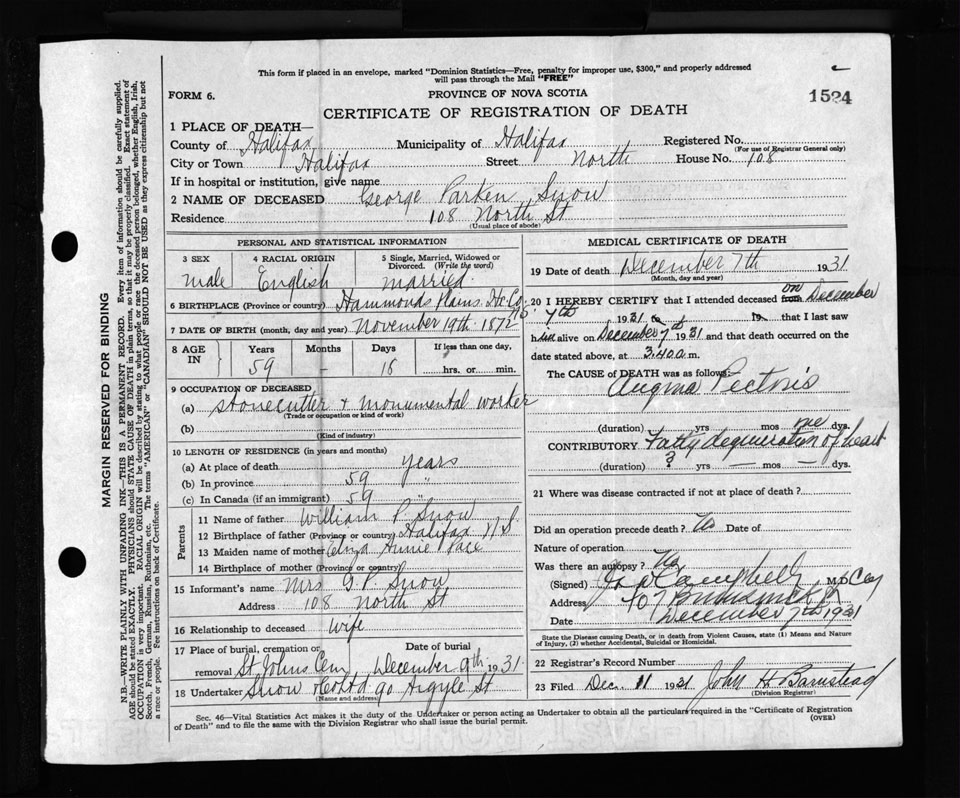 This form if placed in an envelope, marked "Dominion Statistics—Free, penalty for improper use, $300," and properly addressed
will pass through the Mail "FREE"
FORM 6.
PROVINCE OF NOVA SCOTIA
1524
CERTIFICATE OF REGISTRATION OF DEATH
1 PLACE OF DEATH—
County of Halifax Municipality of Halifax Registered No.
(For use of Registrar General only)
City or Town Halifax Street North House No. 108
If in hospital or institution, give name
2 NAME OF DECEASED George Parker Snow
Residence 108 North St
(Usual place of abode)
PERSONAL AND STATISTICAL INFORMATION
3 SEX
male
4 RACIAL ORIGIN
English
5 Single, Married, Widowed or
Divorced. (Write the word)
married
6 BIRTHPLACE (Province or country) Hammonds Plains Hx Co. N.S.
7 DATE OF BIRTH (month, day and year) November 19th 1872
8 AGE IN
Years Months Days If less than one day,
59 – 18 hrs. or min.
9 OCCUPATION OF DECEASED
(a) Stonecutter + monumental worker
(Trade or occupation or kind of work)
(b)
(Kind of industry)
10 LENGTH OF RESIDENCE (in years and months)
(a) At place of death years
(b) In province 59 "
(c) In Canada (if an immigrant) 59 "
Parents
11 Name of father William P. Snow
12 Birthplace of father (Province or country) Halifax N.S.
13 Maiden name of mother Eliza Annie Pace
14 Birthplace of mother (Province or country)
15 Informant's name Mrs G. P. Snow
Address 108 North St
16 Relationship to deceased wife
17 Place of burial, cremation or removal Date of burial
St Johns Cem December 9th 1931
18 Undertaker Snow & Co Ltd 90 Argyle St
(Name and address)
MEDICAL CERTIFICATE OF DEATH
19 Date of death December 7th 1931
(Month, day and year)
20 I HEREBY CERTIFY that I attended deceased from on December
7th 1931 to 19 that I last saw
him alive on December 7th 1931 and that death occurred on the
date stated above, at 3.40 a.m.
The CAUSE OF DEATH was as follows:
Angina Pectoris
(duration) yrs mos one dys.
CONTRIBUTORY Fatty degeneration of heart
(duration) ? yrs — mos — dys.
21 Where was disease contracted if not at place of death?
Did an operation precede death? No Date of
Nature of operation
Was there an autopsy? No
(Signed) Campbell M.D.
Address 407 Brunswick St
Date December 7th 1931
State the Disease causing Death, or in death from Violent Causes, state (1) Means and Nature
of Injury, (2) whether Accidental, Suicidal or Homicidal.
22 Registrar's Record Number
23 Filed Dec. 11 1931 John H. Barnstead
(Division Registrar)
Sec. 46—Vital Statistics Act makes it the duty of the Undertaker or person acting as Undertaker to obtain all the particulars required in the "Certificate of Registration
of Death" and to file the same with the Division Registrar who shall issue the burial permit.
(OVER)
MARGIN RESERVED FOR BINDING
N.B.—WRITE PLAINLY WITH UNFADING INK—THIS IS A PERMANENT RECORD. Every item of information should be carefully supplied.
AGE should be stated EXACTLY. PHYSICIANS should STATE CAUSE OF DEATH in plain terms, so that it may be properly classified. Exact statement of
OCCUPATION is very important. RACIAL ORIGIN will be described by stating to what people or race the deceased person belonged, whether English, Irish,
Scotch, French, German, Russian, Ruthenian, etc. The terms "AMERICAN" or "CANADIAN" SHOULD NOT BE USED as they express citizenship but not
a race or people. See instructions on back of Certificate.